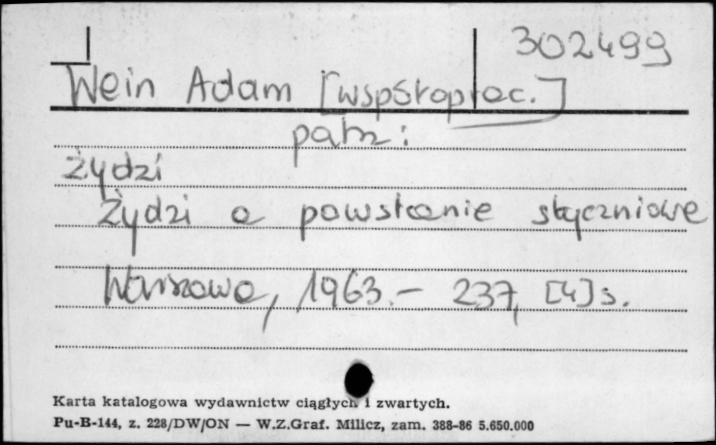 302499
Wein Adam [współoprac.]
patrz:
Żydzi
Żydzi a powstanie styczniowe
Warszawa, 1963. – 237, [4] s.
Karta katalogowa wydawnictw ciągłych i zwartych.
Pu-B-144, z. 228/DW/ON — W.Z.Graf. Milicz, zam. 388-86 5.650.000